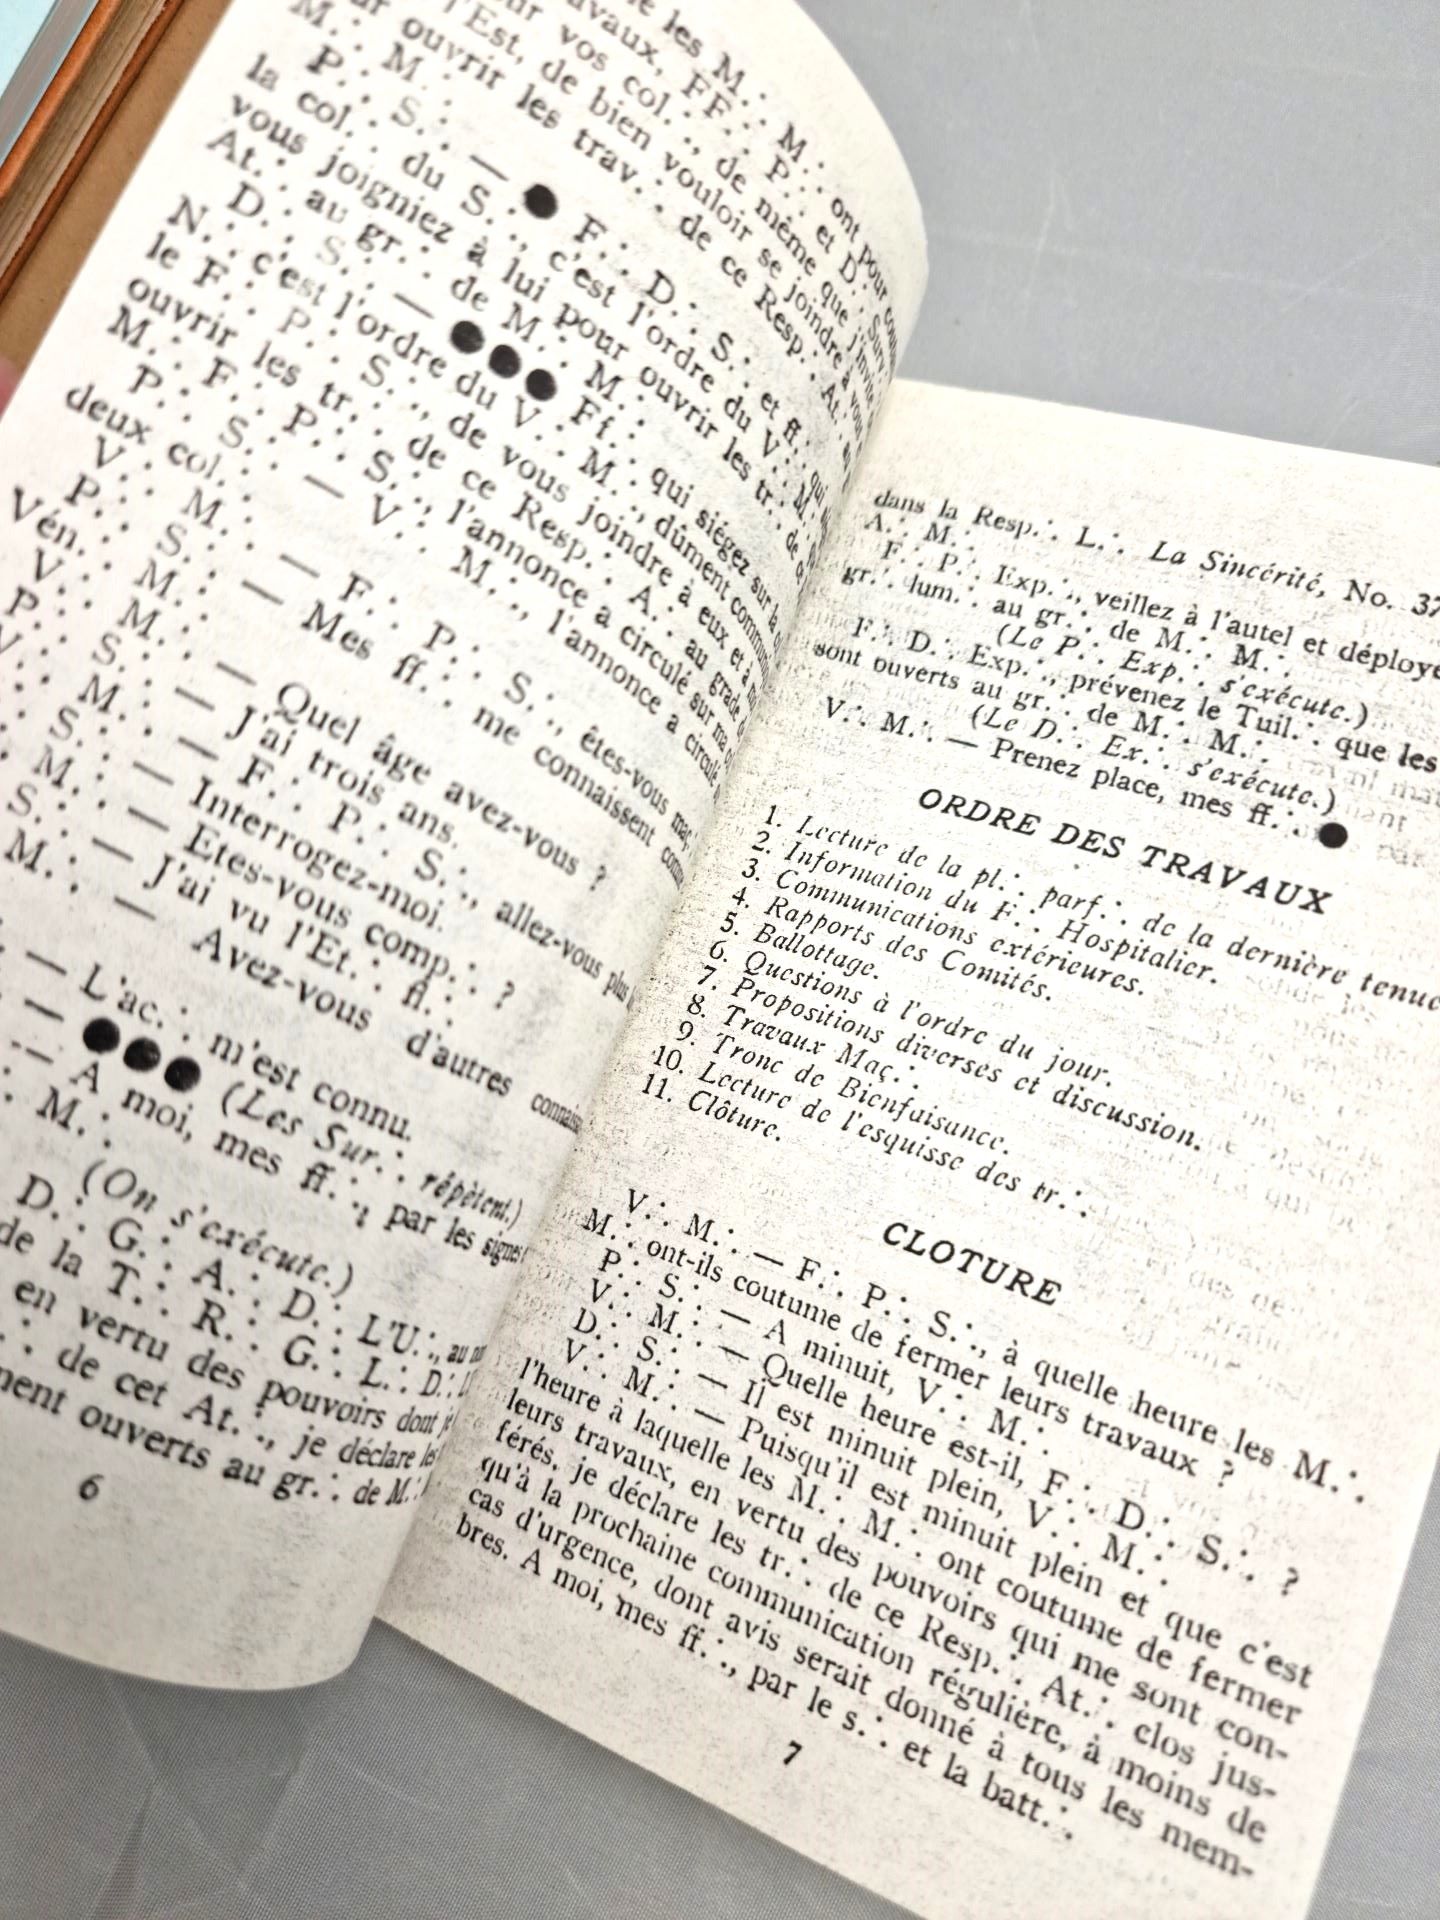 les M.·.
avaux, FF.·. M.·. ont pour
our vos col.·., de P.·. et D.·. Surv.
l'Est, de bien vouloir se joindre à vous
ur ouvrir les trav.·. de ce Resp.·. At.·.
M.·. M.·.
P.·. S.·. — ● F.·. D.·. S.·. et ff.·. qui
la col.·. du S.·., c'est l'ordre du V.·. M.·.
vous joigniez à lui pour ouvrir les tr.·. de
At.·. au gr.·. de M.·. M.·.
D.·. S.·. — ●●● Ff.·. qui siégez sur la
N.·. c'est l'ordre du V.·. M.·., dûment
le F.·. P.·. S.·., de vous joindre à eux et à
ouvrir les tr.·. de ce Resp.·. A.·. au grade
M.·. F.·. P.·. S.·., l'annonce a circulé sur ma
P.·. S.·. — V.·. M.·., l'annonce a circulé
deux col.·.
V.·. M.·. — F.·. P.·. S.·., êtes-vous maç.·.
P.·. S.·. — Mes ff.·. me connaissent
Vén.·.
V.·. M.·. — Quel âge avez-vous ?
P.·. S.·. — J'ai trois ans.
V.·. M.·. — F.·. P.·. S.·., allez-vous plus
S.·. — Interrogez-moi.
M.·. — Etes-vous comp.·. ?
S.·. — J'ai vu l'Et.·. fl.·.
M.·. — Avez-vous d'autres
— L'ac.·. m'est connu.
— ●●● (Les Sur.·. répètent.)
— A moi, mes ff.·., par les signes
M.·.
(On s'exécute.)
D.·. G.·. A.·. D.·. L'U.·., au
de la T.·. R.·. G.·. L.·. D.·.
en vertu des pouvoirs dont
de cet At.·., je déclare les
ment ouverts au gr.·. de M.·.
6
dans la Resp.·. L.·. La Sincérité, No. 37
A.·. M.·.
F.·. P.·. Exp.·., veillez à l'autel et déployez
gr.·. lum.·. au gr.·. de M.·. M.·.
(Le P.·. Exp.·. s'exécute.)
F.·. D.·. Exp.·., prévenez le Tuil.·. que les
sont ouverts au gr.·. de M.·. M.·.
(Le D.·. Ex.·. s'exécute.)
V.·. M.·. — Prenez place, mes ff.·. ●
ORDRE DES TRAVAUX
1. Lecture de la pl.·. parf.·. de la dernière tenue
2. Information du F.·. Hospitalier.
3. Communications extérieures.
4. Rapports des Comités.
5. Ballottage.
6. Questions à l'ordre du jour.
7. Propositions diverses et discussion.
8. Travaux Maç.·.
9. Tronc de Bienfaisance.
10. Lecture de l'esquisse des tr.·.
11. Clôture.
CLOTURE
V.·. M.·. — F.·. P.·. S.·., à quelle heure les M.·.
M.·. ont-ils coutume de fermer leurs travaux ?
P.·. S.·. — A minuit, V.·. M.·.
V.·. M.·. — Quelle heure est-il, F.·. D.·. S.·. ?
D.·. S.·. — Il est minuit plein, V.·. M.·.
V.·. M.·. — Puisqu'il est minuit plein et que c'est
l'heure à laquelle les M.·. M.·. ont coutume de fermer
leurs travaux, en vertu des pouvoirs qui me sont con-
férés, je déclare les tr.·. de ce Resp.·. At.·. clos jus-
qu'à la prochaine communication régulière, à moins de
cas d'urgence, dont avis serait donné à tous les mem-
bres. A moi, mes ff.·., par le s.·. et la batt.·.
7